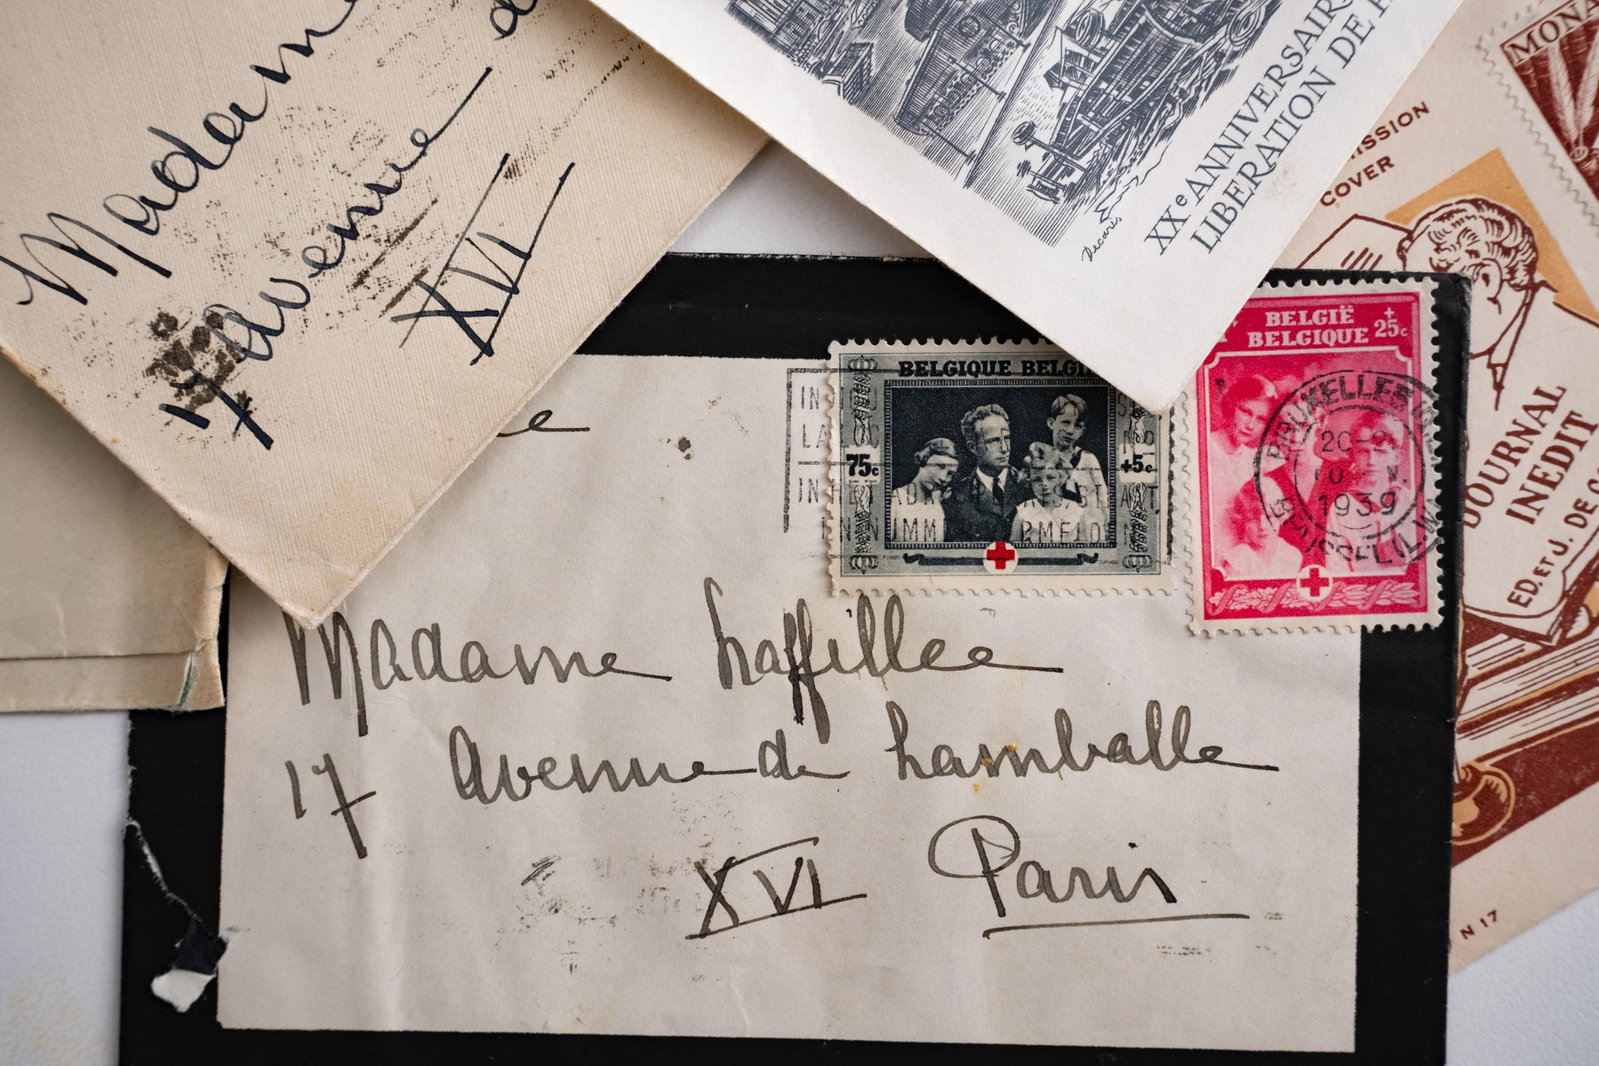 Madame
17 avenue
XVI
XXe ANNIVERSAIRE
LIBERATION DE
Decaris
MONA
ISSION
COVER
JOURNAL
INEDIT
ED. ET J. DE GO
N 17
BELGIQUE BELGI
75c
+5c
BELGIË
BELGIQUE
+
25c
BRUXELLES
20-21
1939
BRUSSEL
Madame Laffillée
17 Avenue de Lamballe
XVI Paris